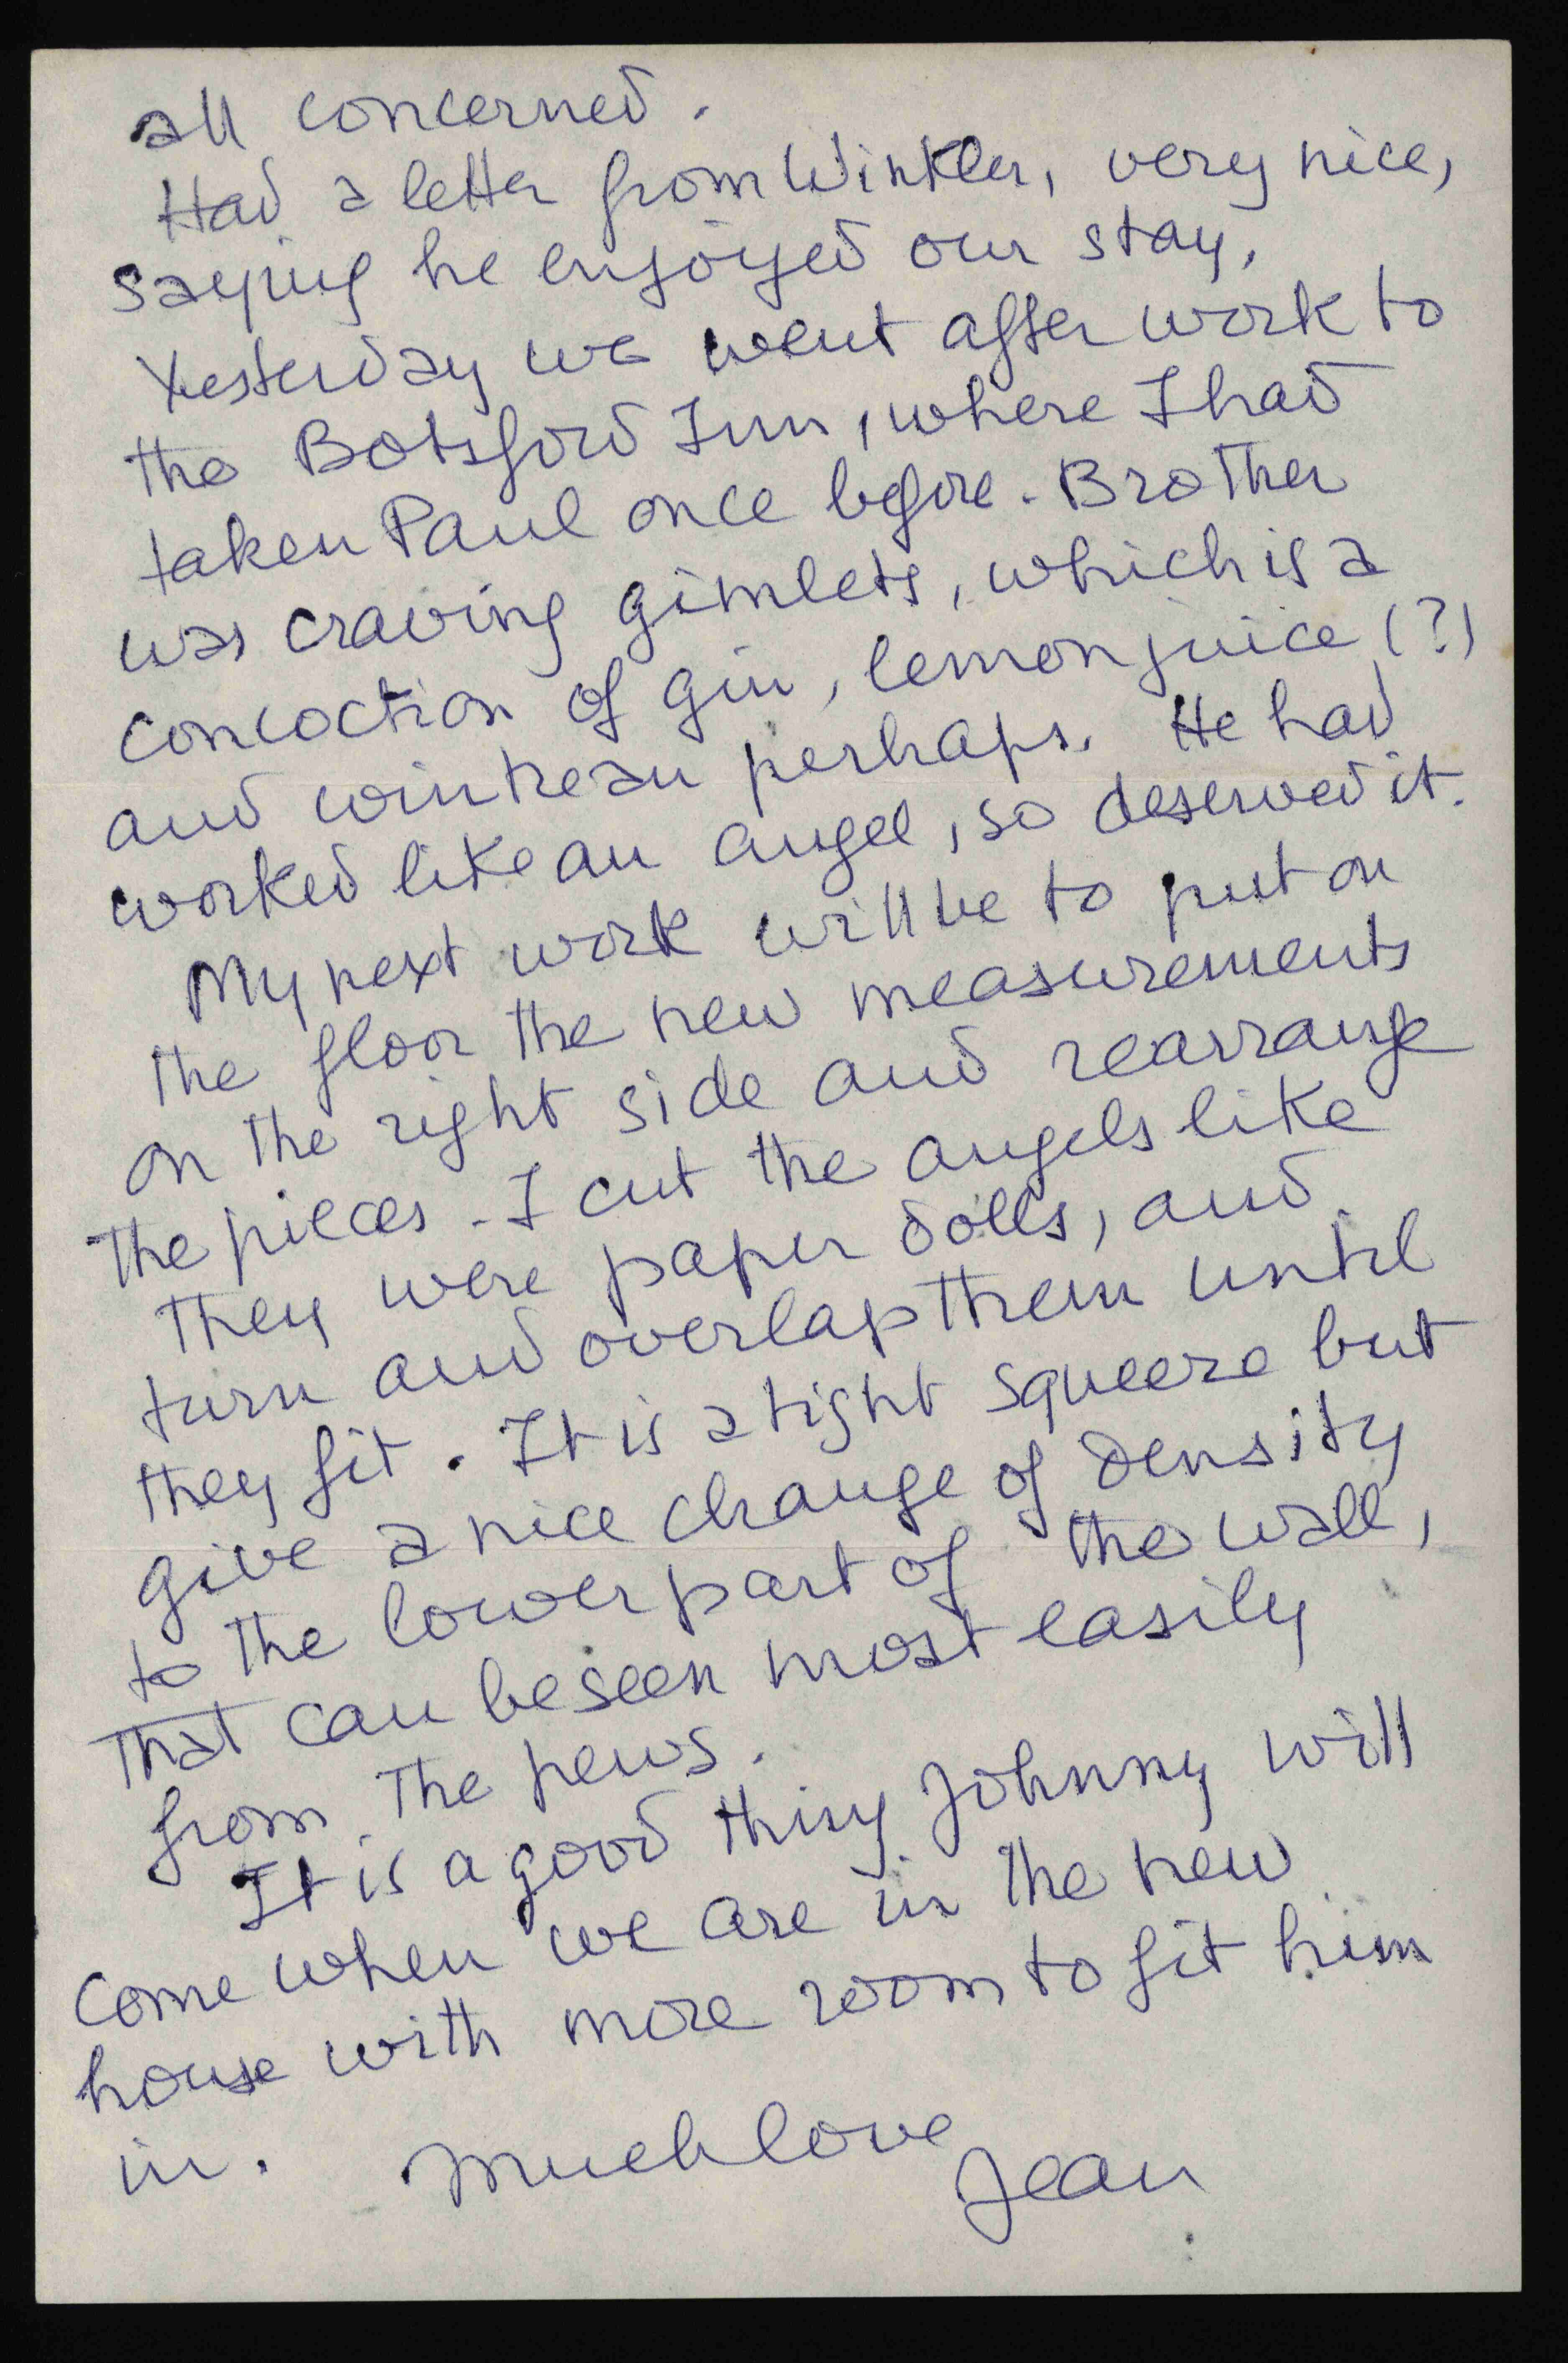 all concerned.
Had a letter from Winkler, very nice,
saying he enjoyed our stay,
Yesterday we went after work to
the Botsford Inn, where I had
taken Paul once before. Brother
was craving gimlets, which is a
concoction of gin, lemon juice (?)
and cointreau perhaps. He had
worked like an angel, so deserved it.
My next work will be to put on
the floor the new measurements
on the right side and rearrange
the pieces. I cut the angels like
they were paper dolls, and
turn and overlap them until
they fit. It is a tight squeeze but
give a nice change of density
to the lower part of the wall,
that can be seen most easily
from the pews.
It is a good thing Johnny will
come when we are in the new
house with more room to fit him
in. Much love
Jean